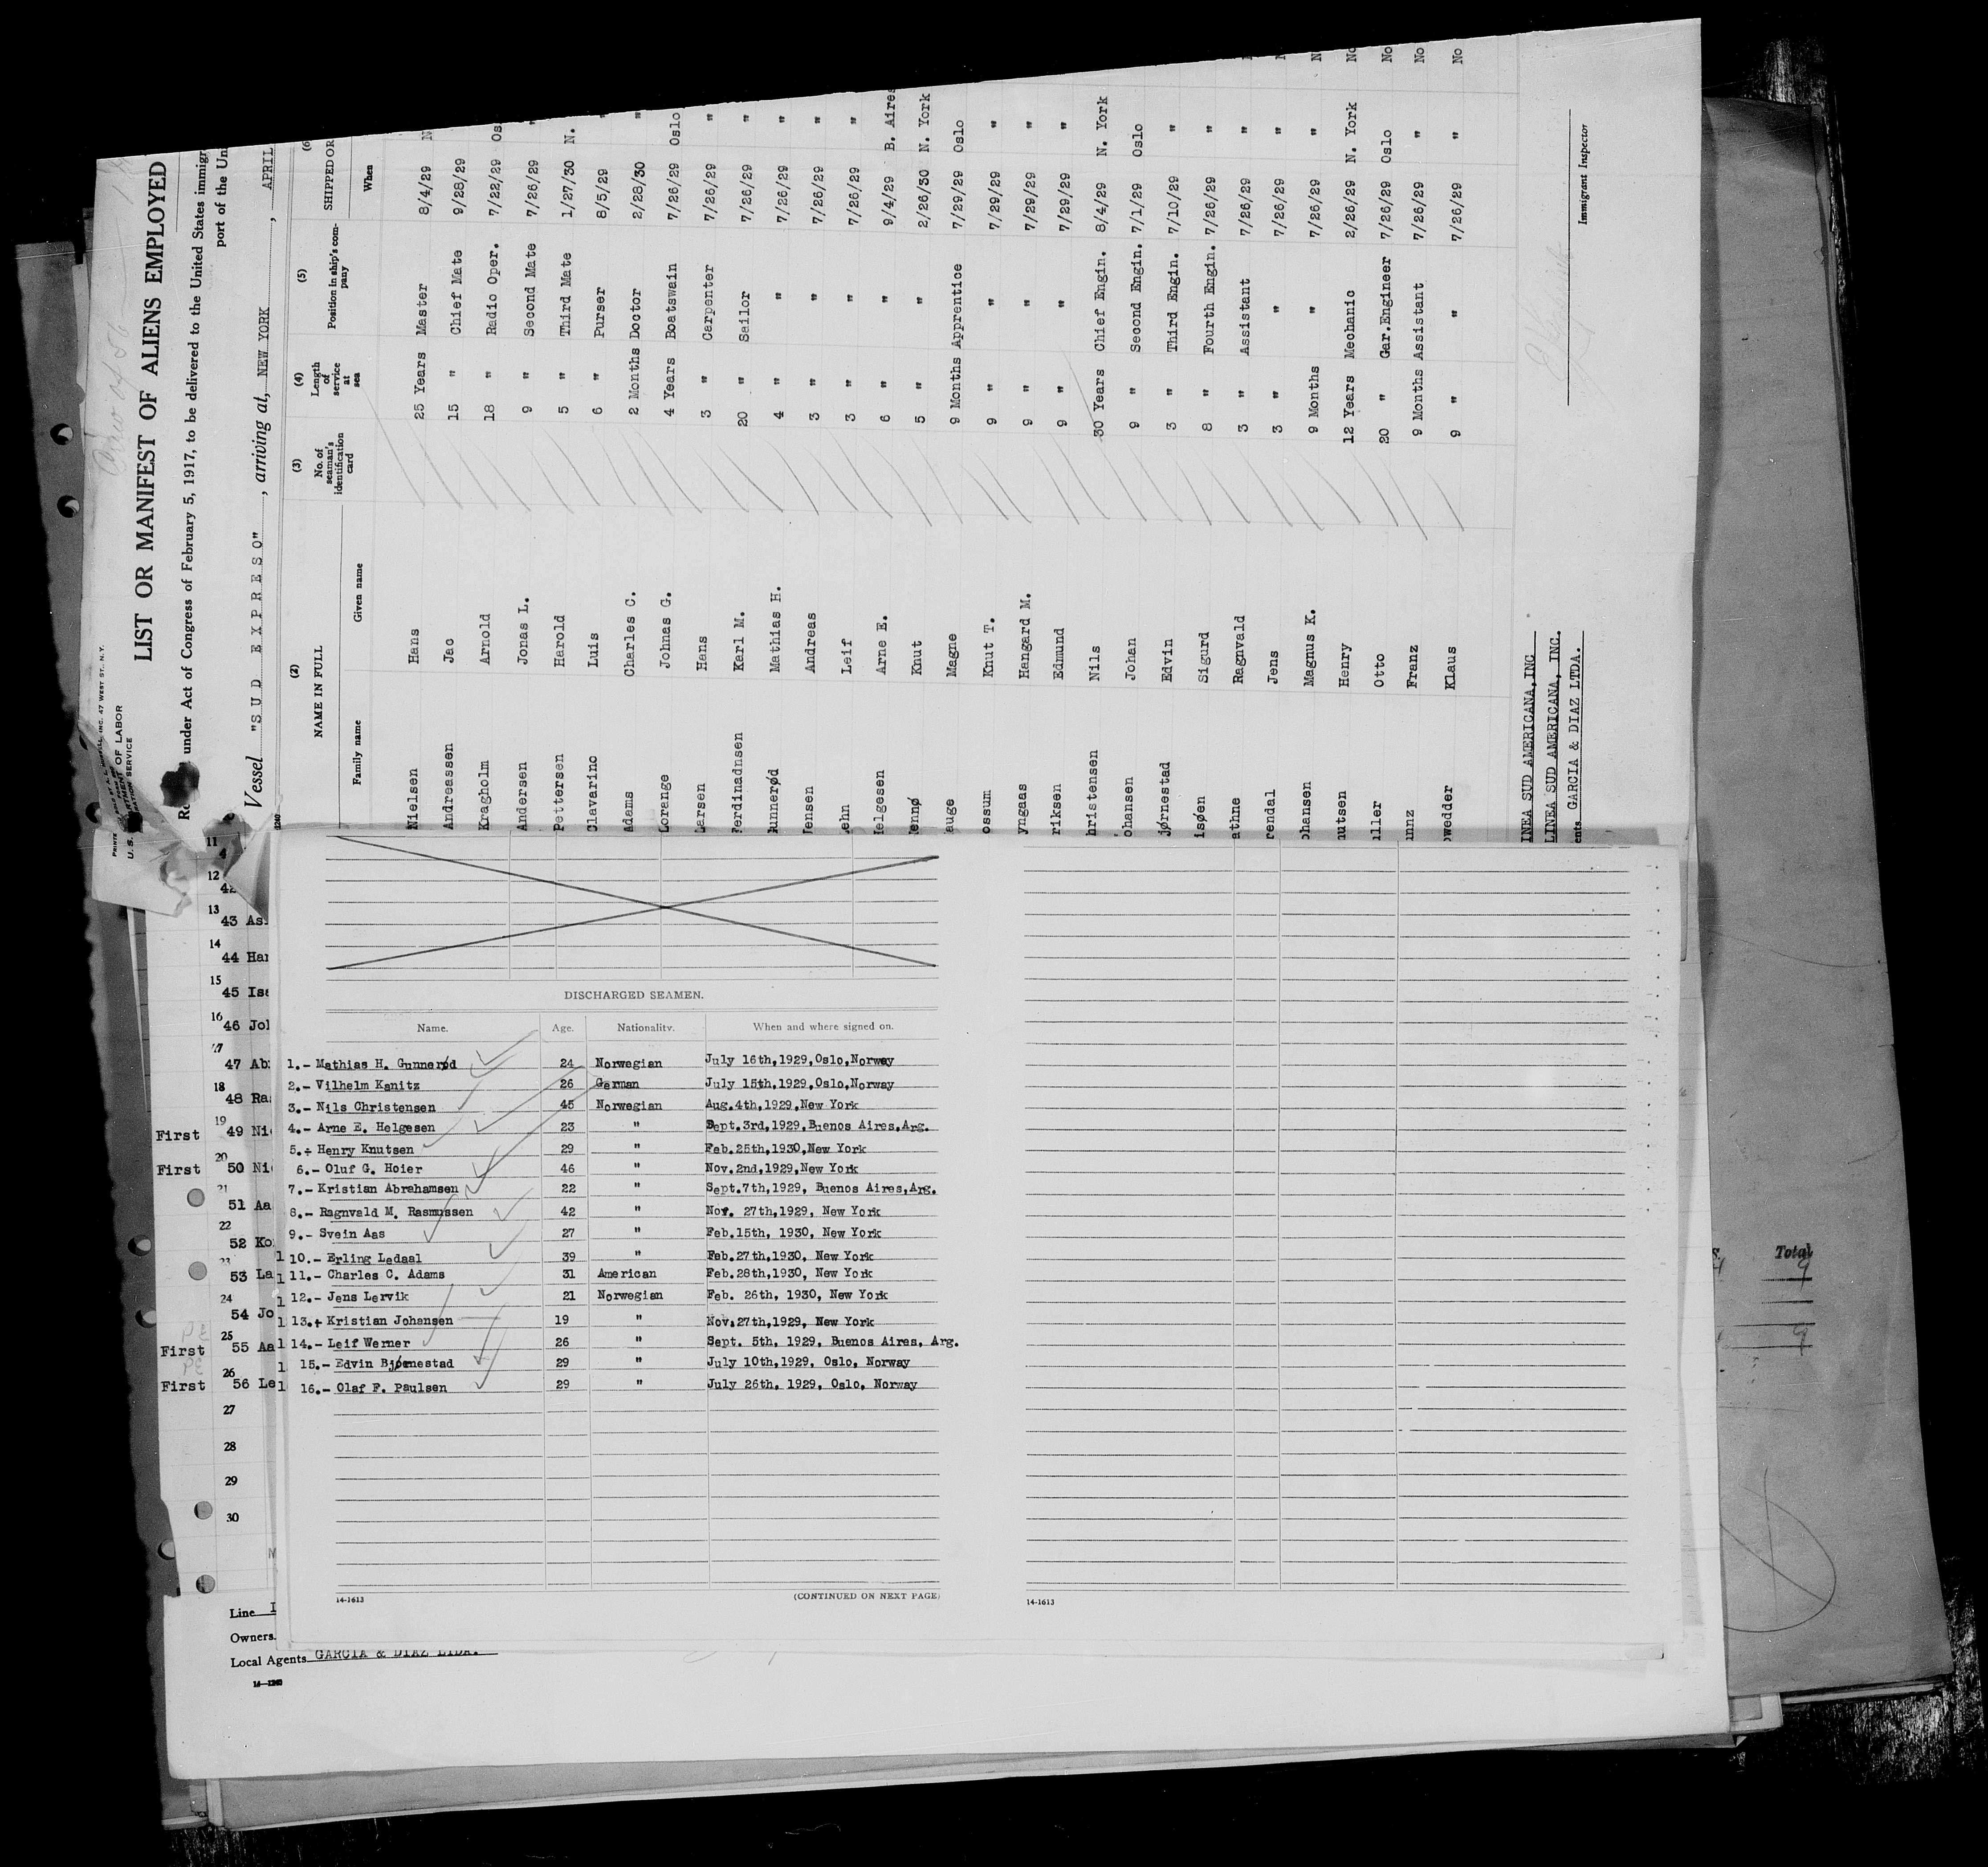 LIST OR MANIFEST OF ALIENS EMPLOYED
under Act of Congress of February 5, 1917, to be delivered to the United States immigr
port of the Un
Vessel "SUD EXPRESO", arriving at, NEW YORK, APRIL
(2) (3) (4) (5)
NAME IN FULL No. of seaman's identification card Length of service at sea Position in ship's company SHIPPED OR
Family name Given name When
Nielsen Hans 25 Years Master 8/4/29 N
Andreassen Jac 15 " Chief Mate 9/28/29
Kragholm Arnold 18 " Radio Oper. 7/22/29 Os
Andersen Jonas L. 9 " Second Mate 7/26/29 "
Pettersen Harold 5 " Third Mate 1/27/30 N.
Clavarino Luis 6 " Purser 8/5/29 "
Adams Charles C. 2 Months Doctor 2/28/30 "
Lorange Johnas G. 4 Years Boatswain 7/26/29 Oslo
Larsen Hans 3 " Carpenter 7/26/29 "
Ferdinadnsen Karl M. 20 " Sailor 7/26/29 "
unnerød Mathias H. 4 " " 7/26/29 "
ensen Andreas 3 " " 7/26/29 "
ehn Leif 3 " " 7/26/29 "
elgesen Arne E. 6 " " 9/4/29 B. Aires
ennø Knut 5 " " 2/26/30 N. York
auge Magne 9 Months Apprentice 7/29/29 Oslo
ossum Knut T. 9 " " 7/29/29 "
yngaas Hangard M. 9 " " 7/29/29 "
riksen Edmund 9 " " 7/29/29 "
hristensen Nils 30 Years Chief Engin. 8/4/29 N. York
ohansen Johan 9 " Second Engin. 7/1/29 Oslo
jørnestad Edvin 3 " Third Engin. 7/10/29 "
isøen Sigurd 8 " Fourth Engin. 7/26/29 "
athne Ragnvald 3 " Assistant 7/26/29 "
rendal Jens 3 " " 7/26/29 "
ohansen Magnus K. 9 Months " 7/26/29 " N
nutsen Henry 12 Years Mechanic 2/26/29 N. York No
ller Otto 20 " Gar.Engineer 7/26/29 Oslo No
nnz Franz 9 Months Assistant 7/26/29 " No
owedder Klaus 9 " " 7/26/29 " No
INEA SUD AMERICANA, INC
LINEA SUD AMERICANA, INC.
ents GARCIA & DIAZ LTDA.
Immigrant Inspector
DISCHARGED SEAMEN.
Name. Age. Nationality. When and where signed on.
1.- Mathias H. Gunnerød 24 Norwegian July 16th,1929,Oslo,Norway
2.- Vilhelm Kanitz 26 German July 15th,1929,Oslo,Norway
3.- Nils Christensen 45 Norwegian Aug.4th,1929,New York
4.- Arne E. Helgesen 23 " Sept.3rd,1929,Buenos Aires,Arg.
5.- Henry Knutsen 29 " Feb.25th,1930,New York
6.- Oluf G. Hoier 46 " Nov.2nd,1929,New York
7.- Kristian Abrahamsen 22 " Sept.7th,1929, Buenos Aires,Arg.
8.- Ragnvald M. Rasmussen 42 " Nov. 27th,1929, New York
9.- Svein Aas 27 " Feb.15th, 1930, New York
10.- Erling Ledaal 39 " Feb.27th,1930, New York
11.- Charles C. Adams 31 American Feb.28th,1930, New York
12.- Jens Lervik 21 Norwegian Feb. 26th, 1930, New York
13.- Kristian Johansen 19 " Nov.27th,1929, New York
14.- Leif Werner 26 " Sept. 5th, 1929, Buenos Aires, Arg.
15.- Edvin Bjørnestad 29 " July 10th,1929, Oslo, Norway
16.- Olaf F. Paulsen 29 " July 26th, 1929, Oslo, Norway
14-1613 (CONTINUED ON NEXT PAGE)
14-1613
11
12
13 43 As
14 44 Har
15 45 Isa
16 46 Jol
17 47 Ab
18 48 Ra
First 19 49 Ni
First 20 50 Ni
21 51 Aa
22 52 Ko
23 53 La
24 54 Jo
First 25 55 Aa
First 26 56 Le
27
28
29
30
Line
Owners
Local Agents GARCIA & DIAZ LTDA.
14-1240
Total
9
9